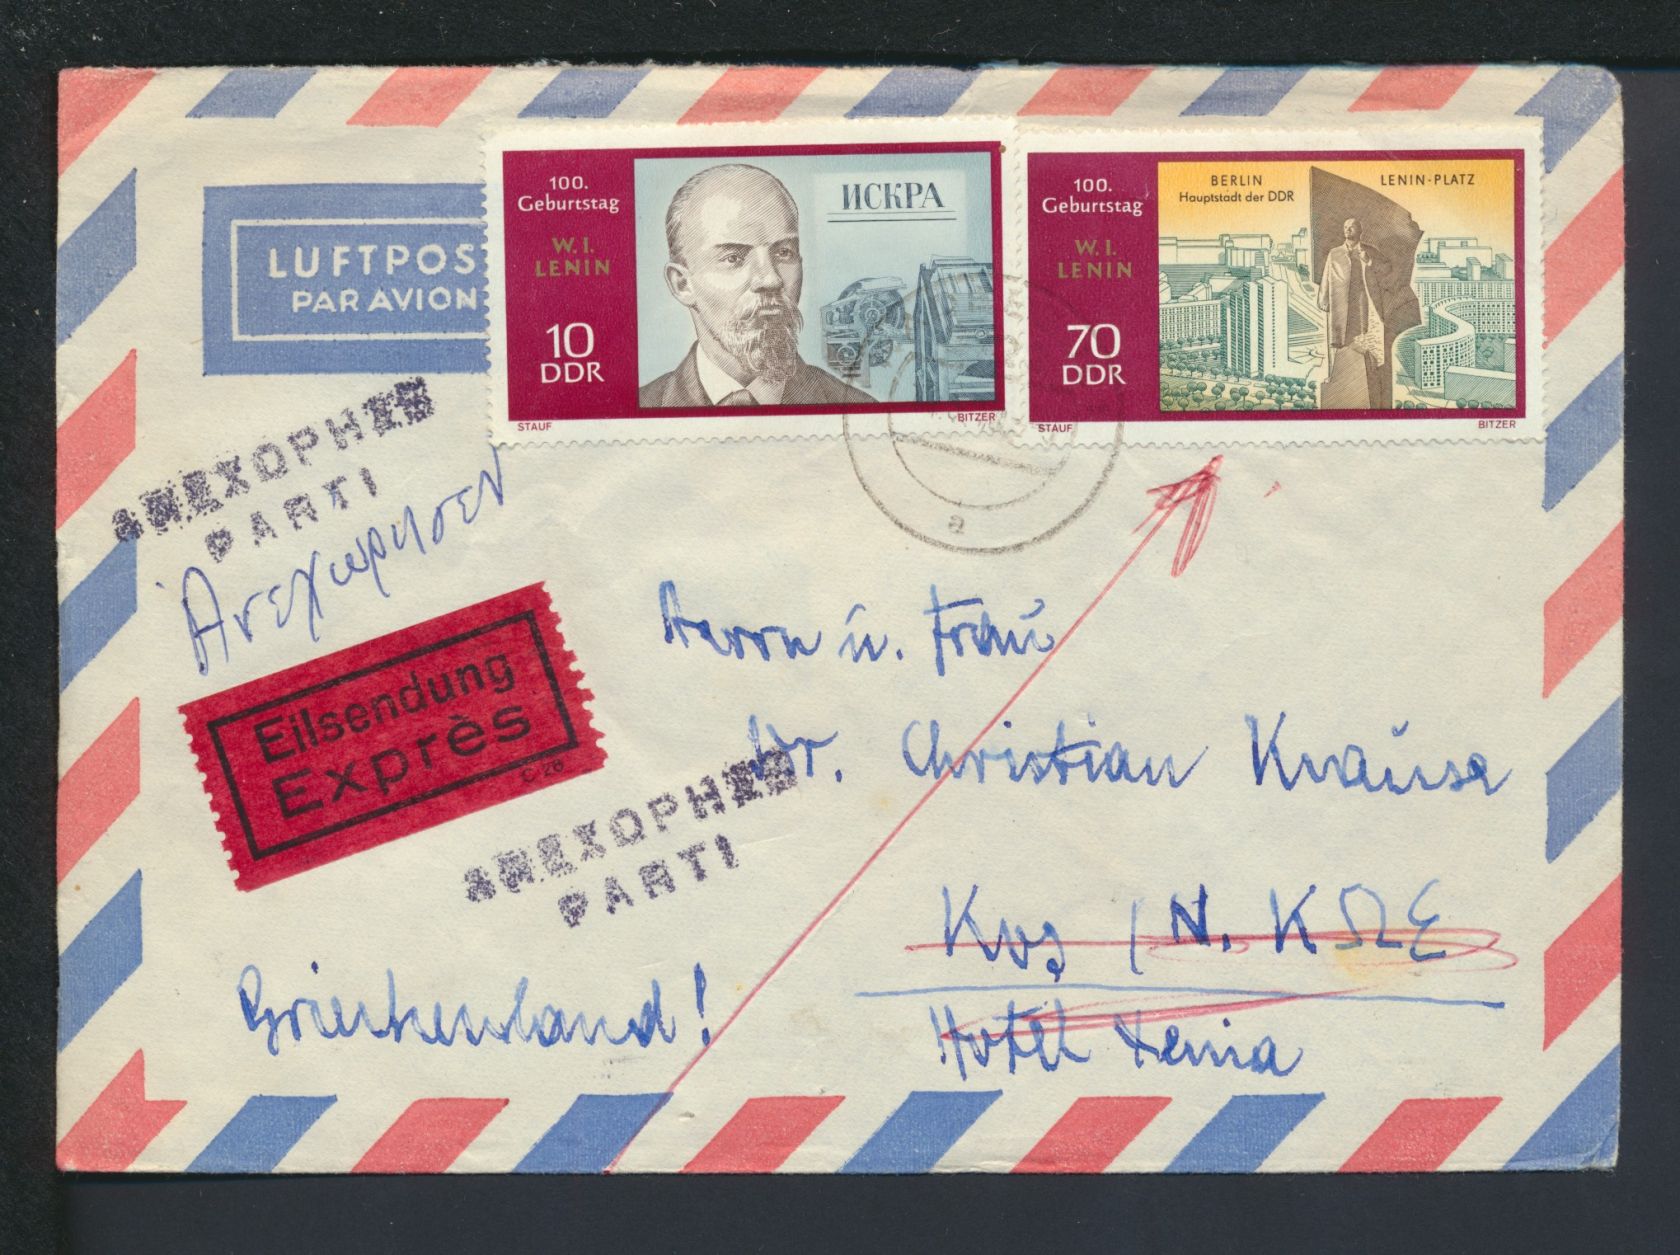 LUFTPOS
PAR AVION
100.
Geburtstag
W. I.
LENIN
10
DDR
ИСКРА
STAUF
BITZER
100.
Geburtstag
W. I.
LENIN
70
DDR
BERLIN
Hauptstadt der DDR
LENIN-PLATZ
STAUF
BITZER
a
PARTI
Ἀνεχώρησεν
Eilsendung
Exprès
C 26
PARTI
Herrn u. Frau
Dr. Christian Krause
Kos / N. KΩΣ
Hotel Xenia
Griechenland!